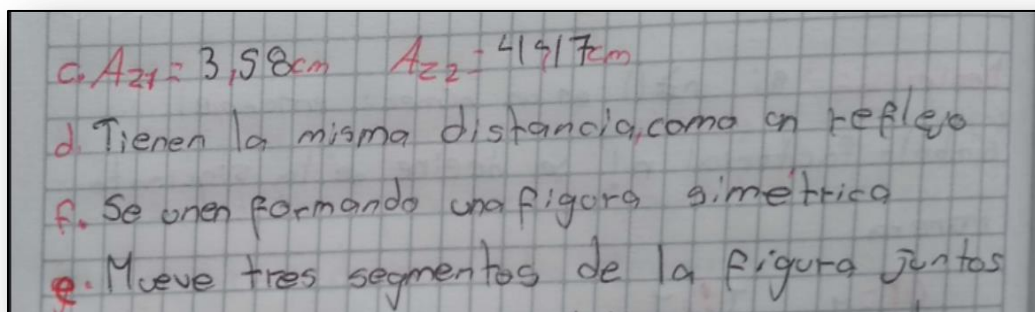 c. Az1 = 3,58cm Az2 = 41,17cm
d. Tienen la misma distancia, como un reflejo
f. Se unen formando una figura simétrica
e. Mueve tres segmentos de la figura juntos